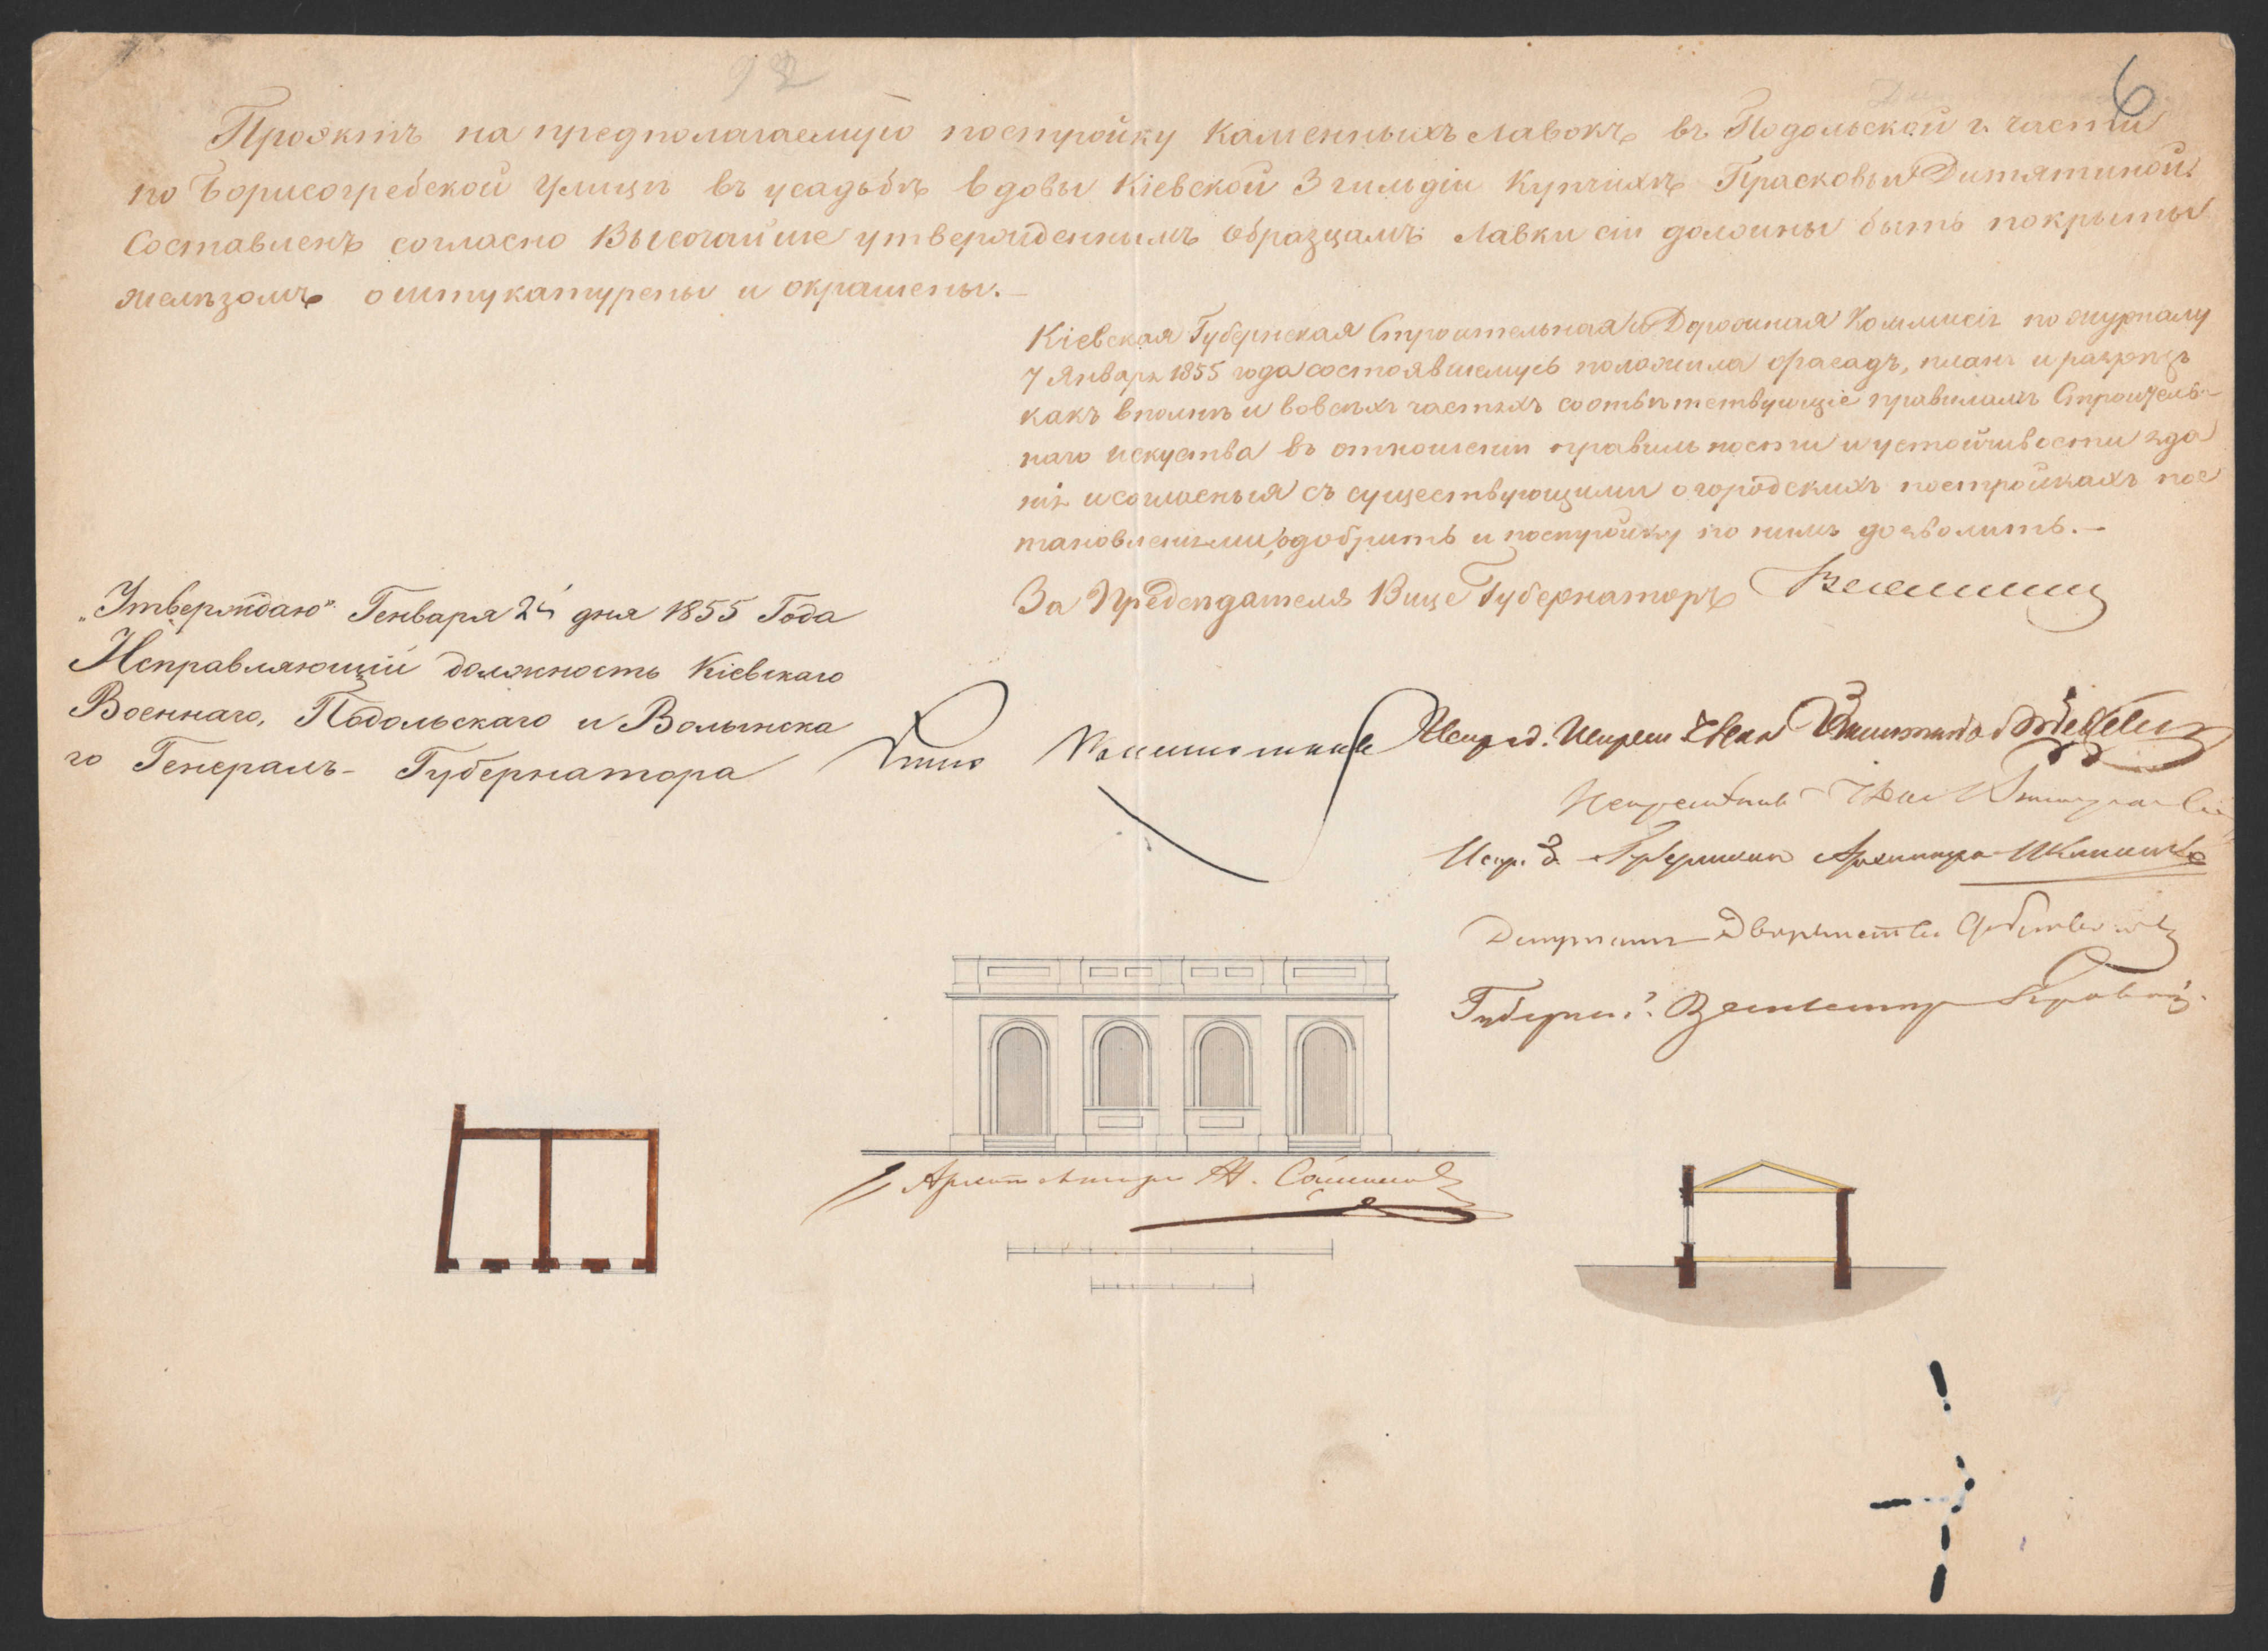 6
Проэктъ на предполагаемую постройку каменныхъ лавокъ въ Подольской г. части
по Борисоглебской улицѣ въ усадьбѣ вдовы Кіевской 3 гильдіи Купчихѣ Прасковьи Дитятиной.
Составленъ согласно Высочайше утвержденнымъ образцамъ. Лавки сіи должны быть покрыты
желѣзомъ оштукатурены и окрашены.—
Кіевская Губернская Строительная и Дорожная Коммисія по журналу
7 Января 1855 года состоявшемусь положила фасадъ, планъ и разрѣзъ
какъ вполнѣ и вовсѣхъ частяхъ соотвѣтствующіе правиламъ Строитель-
наго искуства въ отношеніи правильности и устойчивости зда
нія и согласныя съ существующими о городскихъ постройкахъ пос
тановленіями, одобрить и постройку по нимъ дозволить.—
За Председателя Вице Губернаторъ
„Утверждаю“ Генваря 24 дня 1855 Года
Исправляющій должность Кіевскаго
Военнаго, Подольскаго и Волынска
го Генералъ- Губернатора
Испр. д.
Испр. д. Губернскаго Архитектора
Депутатъ Дворянства
Губернс.
Архитекторъ